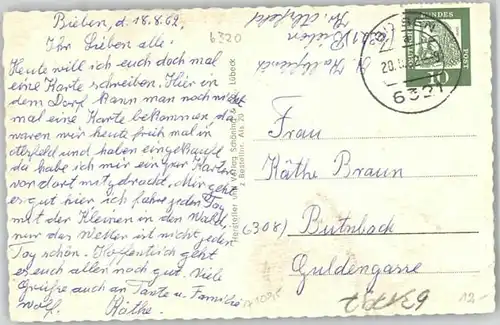 Bieben, d. 18.8.62.
6320
Ihr Lieben alle!
Heute will ich euch doch mal
eine Karte schreiben. Hier in
dem Dorf kann man noch nicht
mal eine Karte bekommen, da
waren wir heute früh mal in
oterfeld und haben eingekauft
da habe ich mir ein par Karten
von dort mitgebracht. Mir geht
es gut hier ich fahre jeden Tag
mit der Kleinen in den Wald,
nur das Wetter ist nicht jeden
Tag schön. Hoffentlich geht
es euch allen noch gut. Viele
Grüße auch an Tante u Familie
Wolf. Käthe.
Hersteller und Verlag Schöning & Lübeck
z Bestellnr. Als 20
Bieben
20.
6321
DEUTSCHE BUNDESPOST
10
Frau
Käthe Braun
6308) Butzbach
Guldengasse
12,-